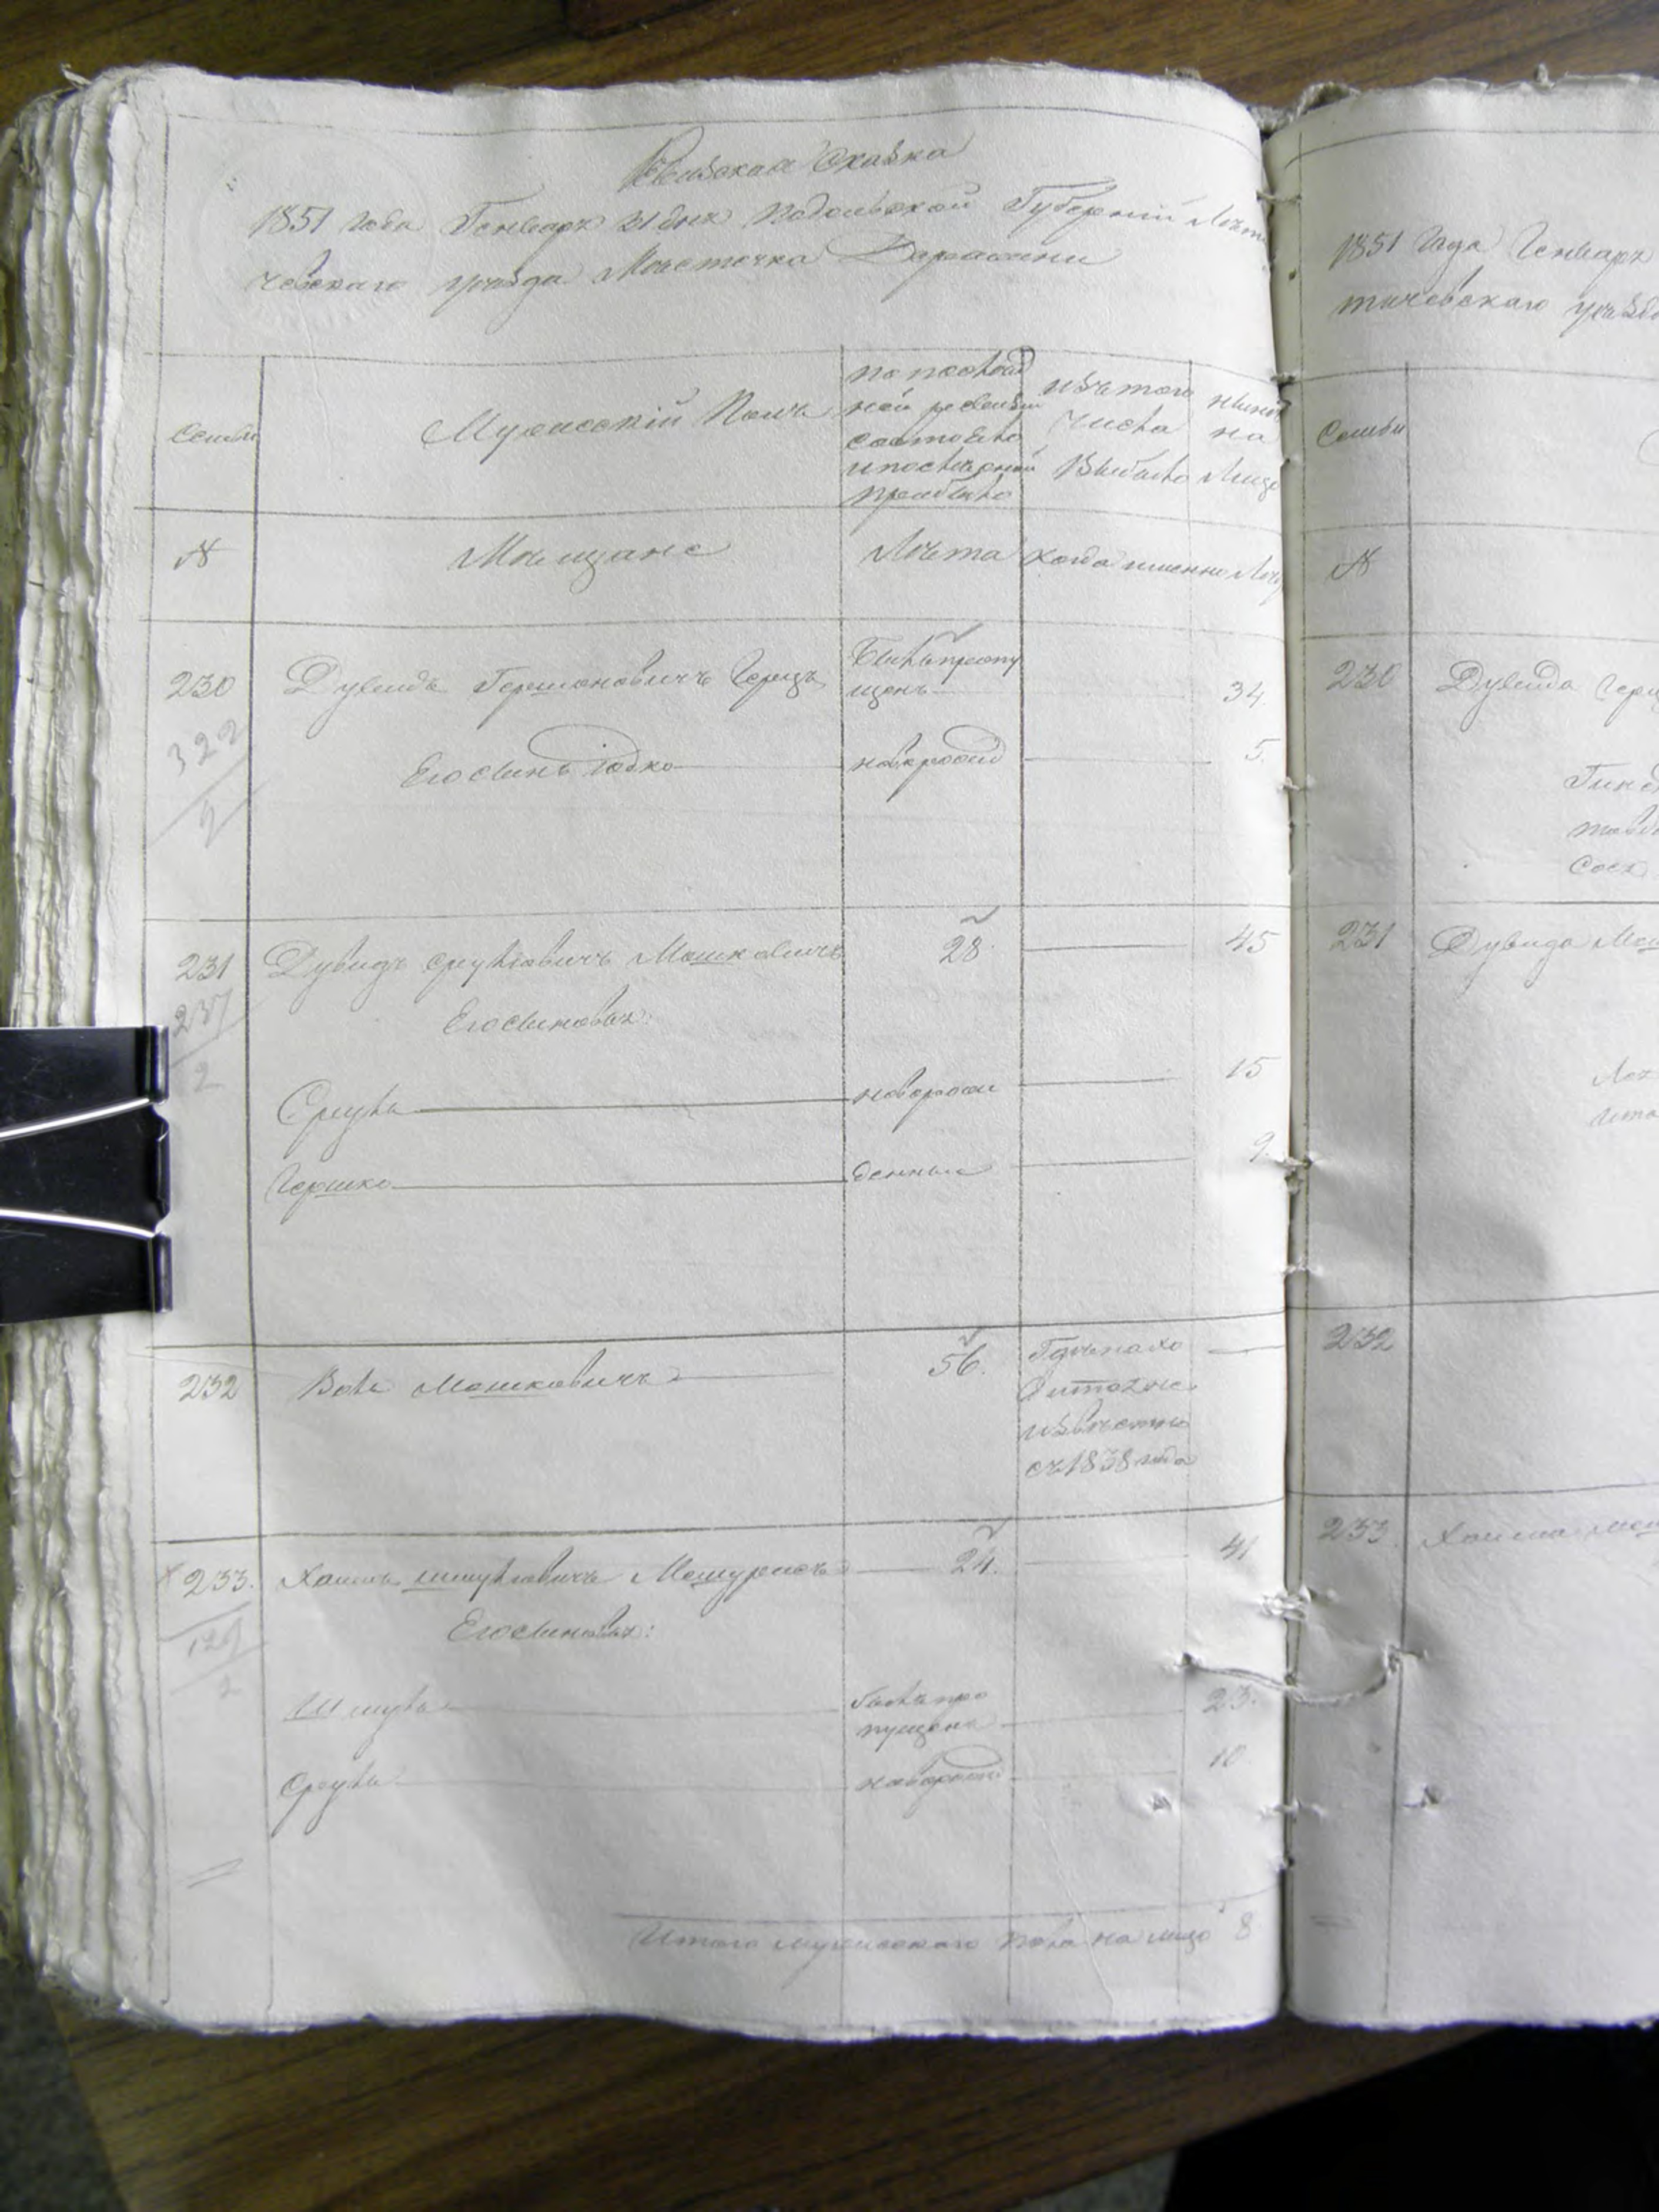 Ревизская Сказка
1851 года Генваря 31 дня Подольской Губернии
чевского уезда Местечка Деражни
Семьи
Мужескій Полъ
по послѣд
ней ревизіи
состояло
и послѣ оной
прибыло
изъ того
числа
Выбыло
нынѣ
на
Лицо
№
Мѣщане
Лѣта
когда именно
230
Дувидъ Гершоновичъ Герцъ
Былъ пропу
щенъ
34.
322
2
Его сынъ Іодко
новорожд
5.
231
Дувидъ Сруліовичъ Мошковичъ
28.
45
237
2
Его сыновья:
Сруль
новорож
15
Гершко
денные
9.
232
Волъ Мошковичъ
56.
Гдѣ нахо
дится не
извѣстно
съ 1838 года
233.
Хаимъ Шмуліовичъ
24.
41
129
2
Его сыновья:
Шмуль
былъ про
пущенъ
23.
Сруль
новорожд
10
Итого мужескаго пола на лицо 8
1851 Года Генваря
тичевскаго уѣзда
Семьи
№
230
Дувида
231
Дувида
232
233.
Хаима